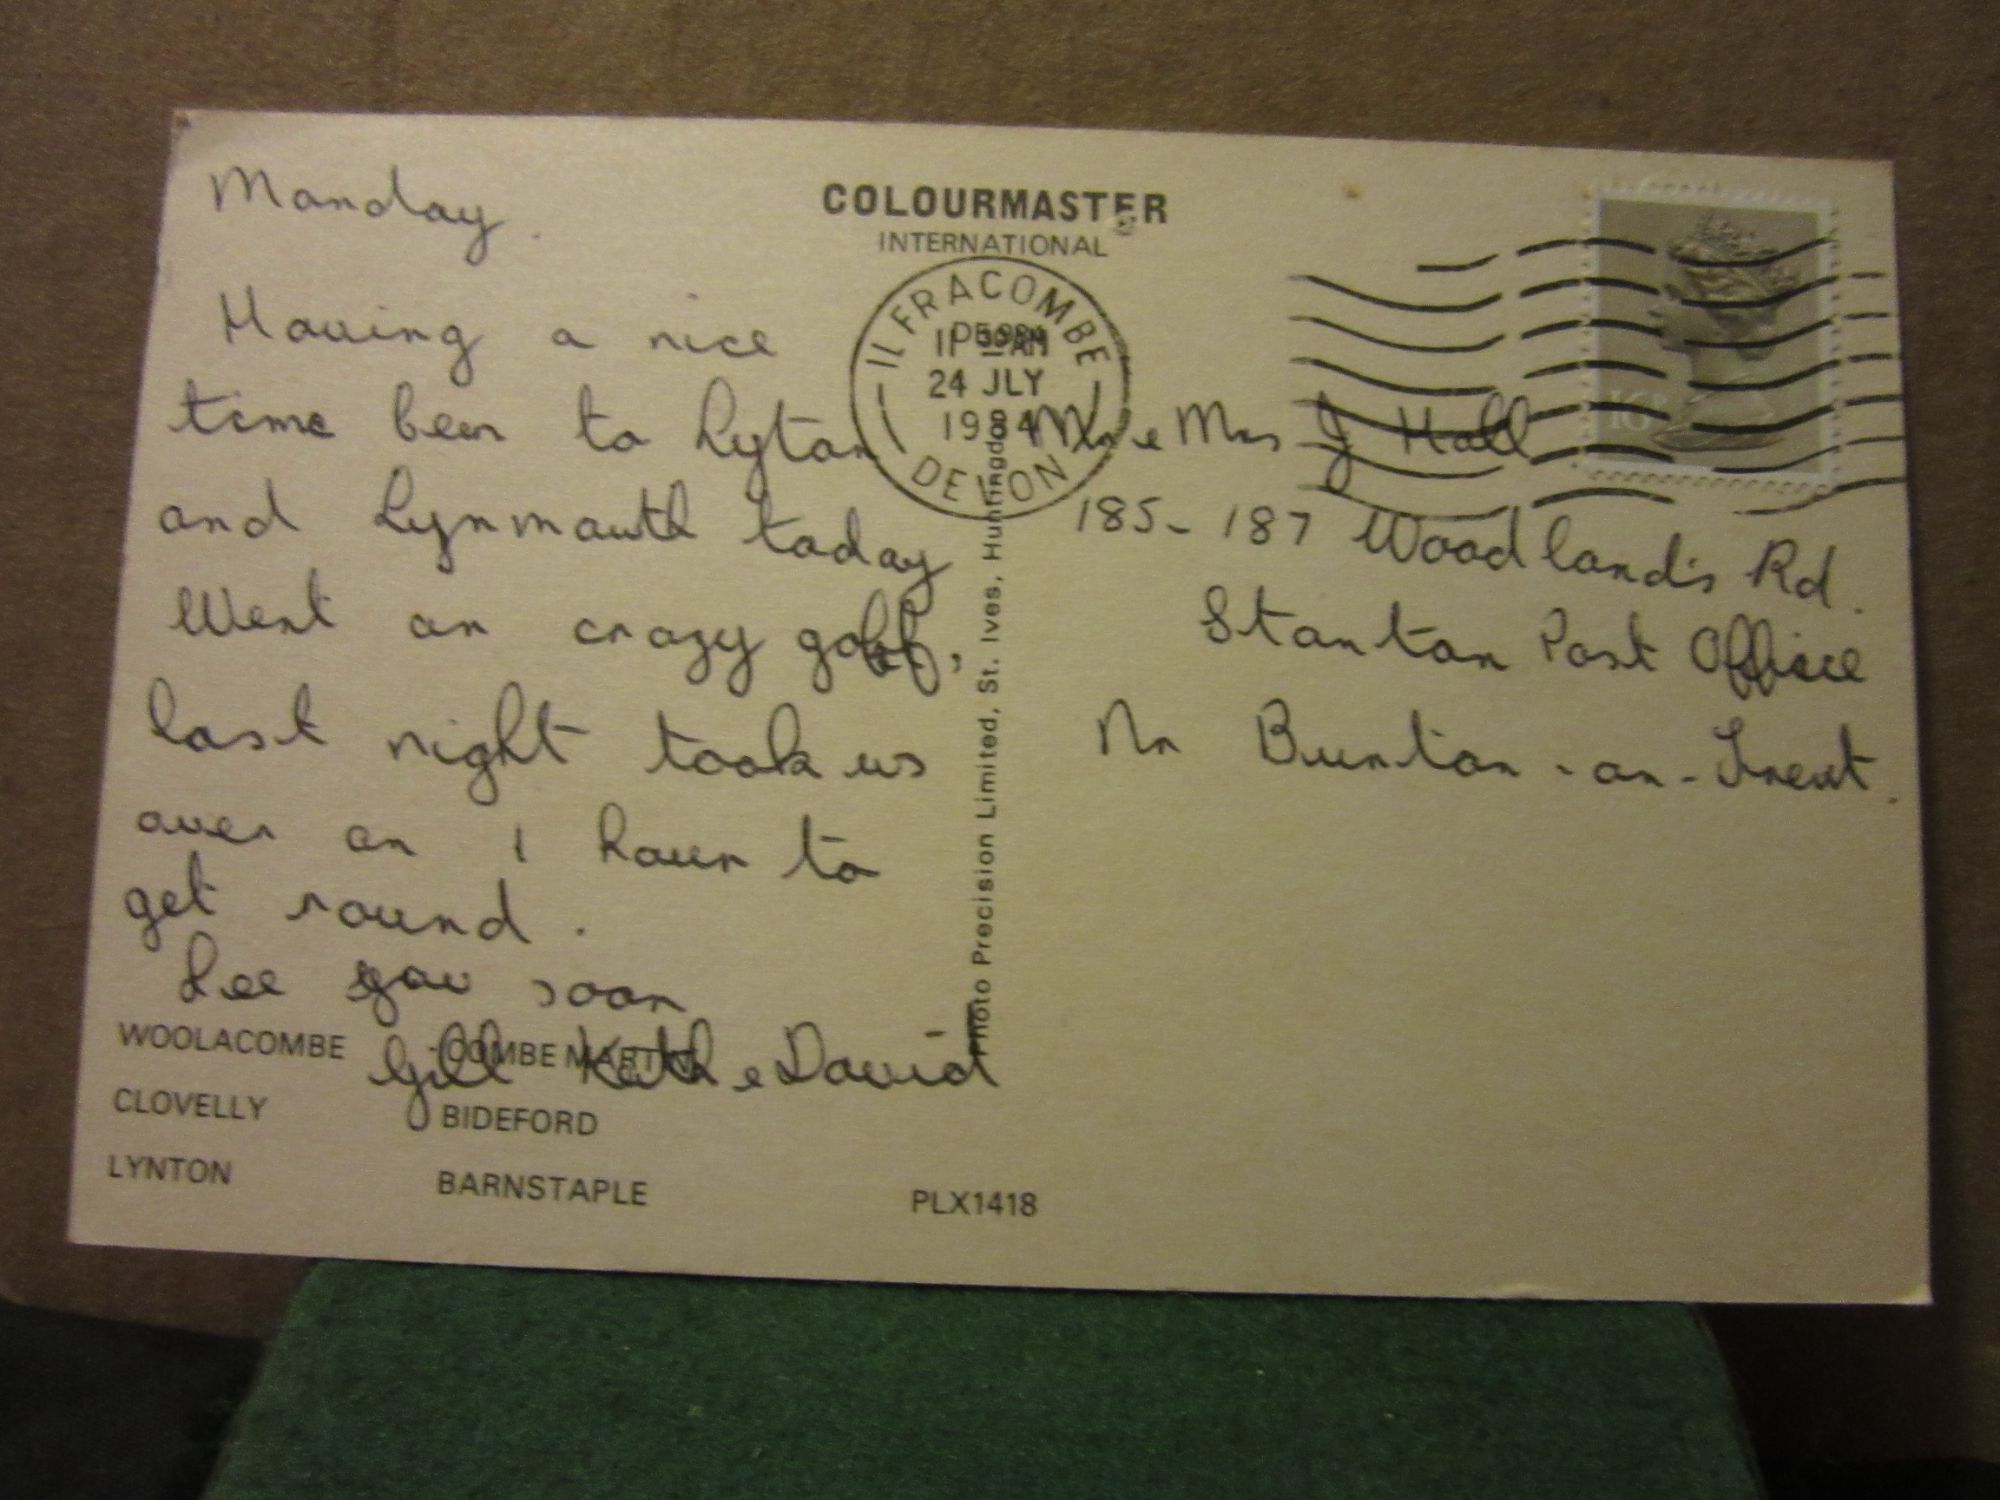 Monday.
Having a nice
time been to Lyton
and Lynmouth today
Went on crazy golf,
last night took us
over an 1 hour to
get round.
See you soon
Gill Kath e David
COLOURMASTER
INTERNATIONAL
ILFRACOMBE
24 JLY
1984
DEVON
Mr e Mrs J Hall
185-187 Woodlands Rd.
Stanton Post Office
Nr Burton-on-Trent.
Photo Precision Limited, St. Ives, Huntingdon
WOOLACOMBE COMBE MARTIN
CLOVELLY BIDEFORD
LYNTON BARNSTAPLE PLX1418